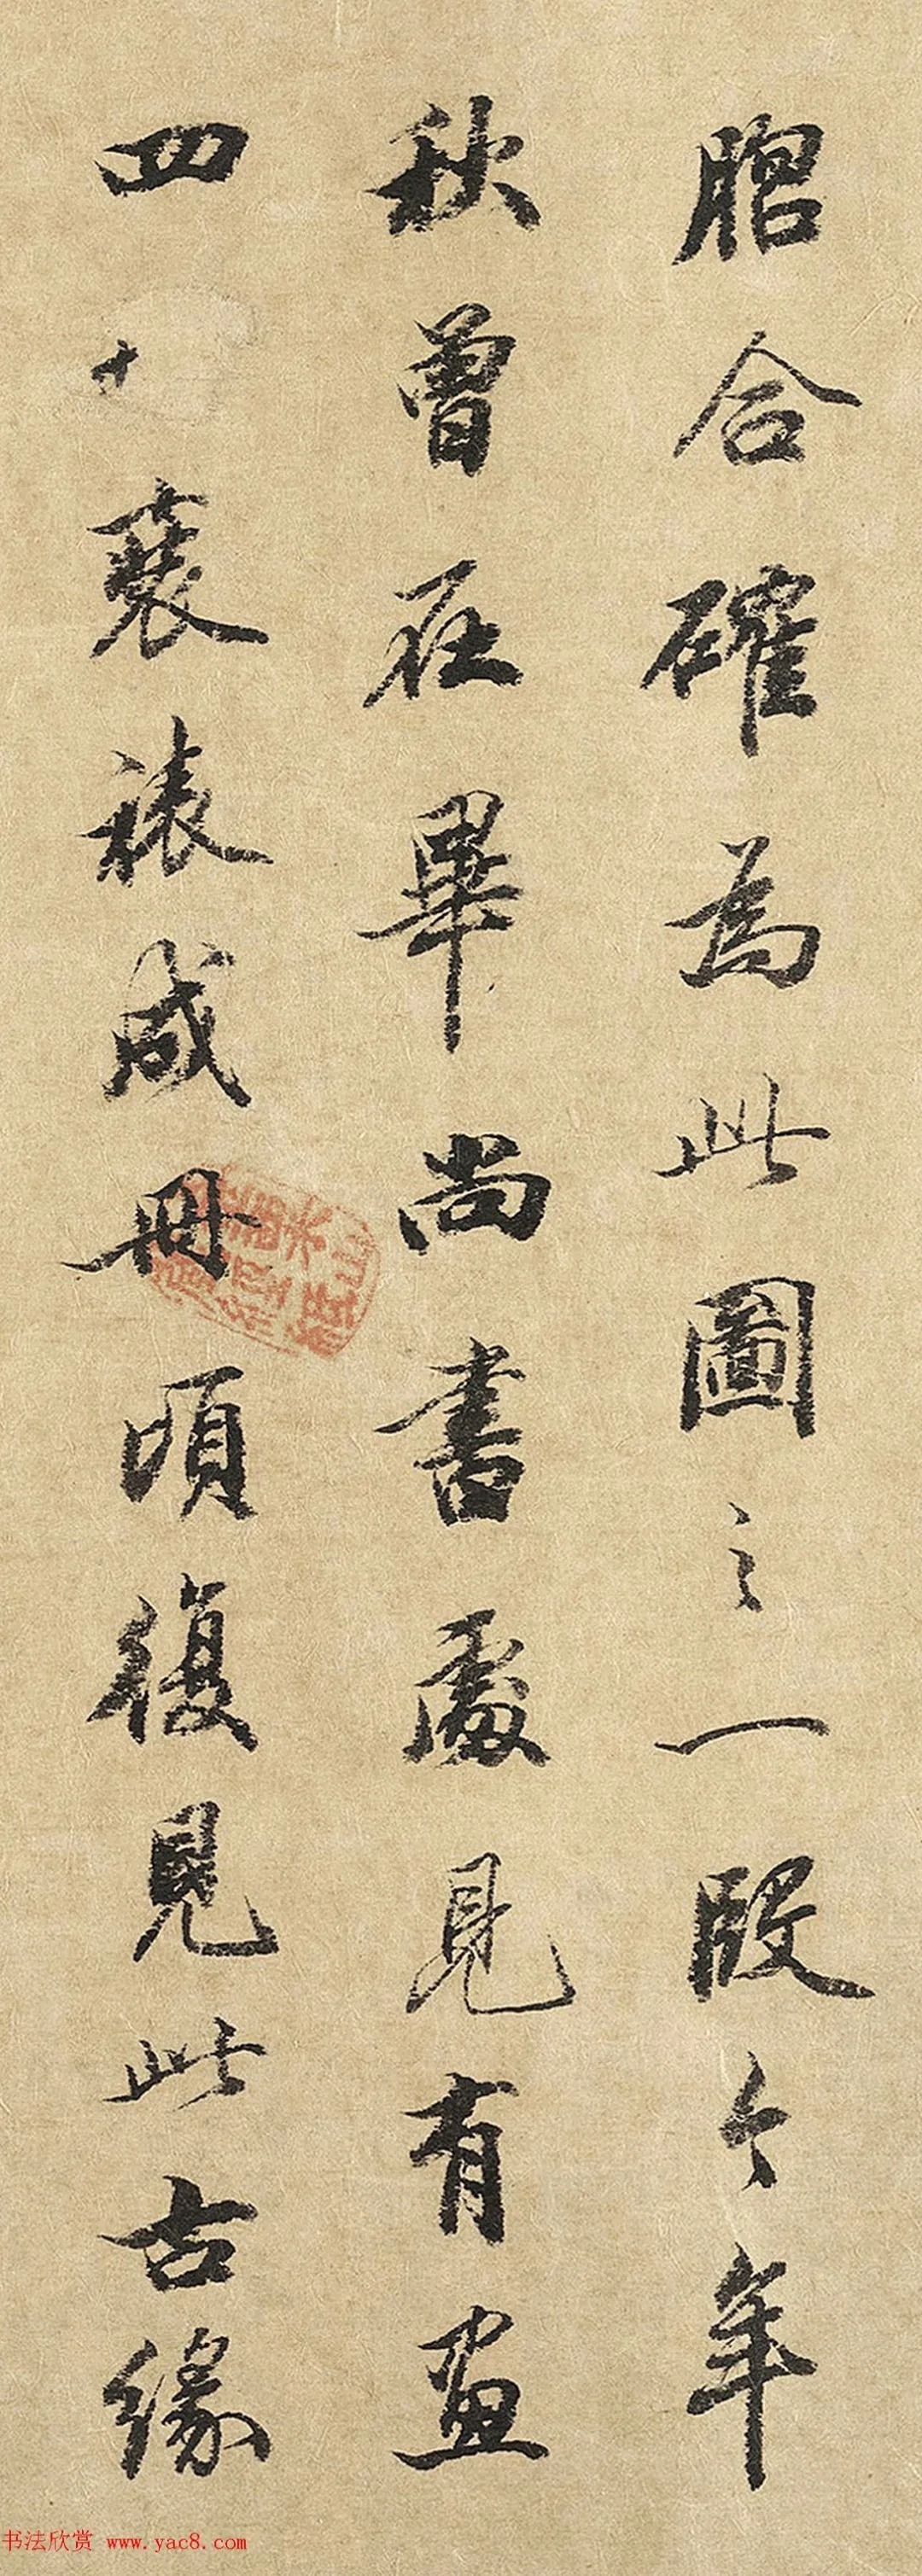 脗合確為此圖之一段今年
秋曾在畢尚書處見有画
四十裘裱成冊頃復見此古緣
书法欣赏 www.yac8.com